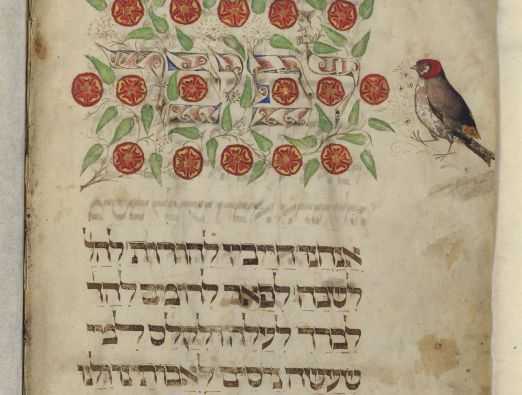 אנחנו חייבין להודות להל
לשבח לפאר לרומם להד
לברך לעלה ולקלס למי
שעשה ניסים לאבותינו ולנו